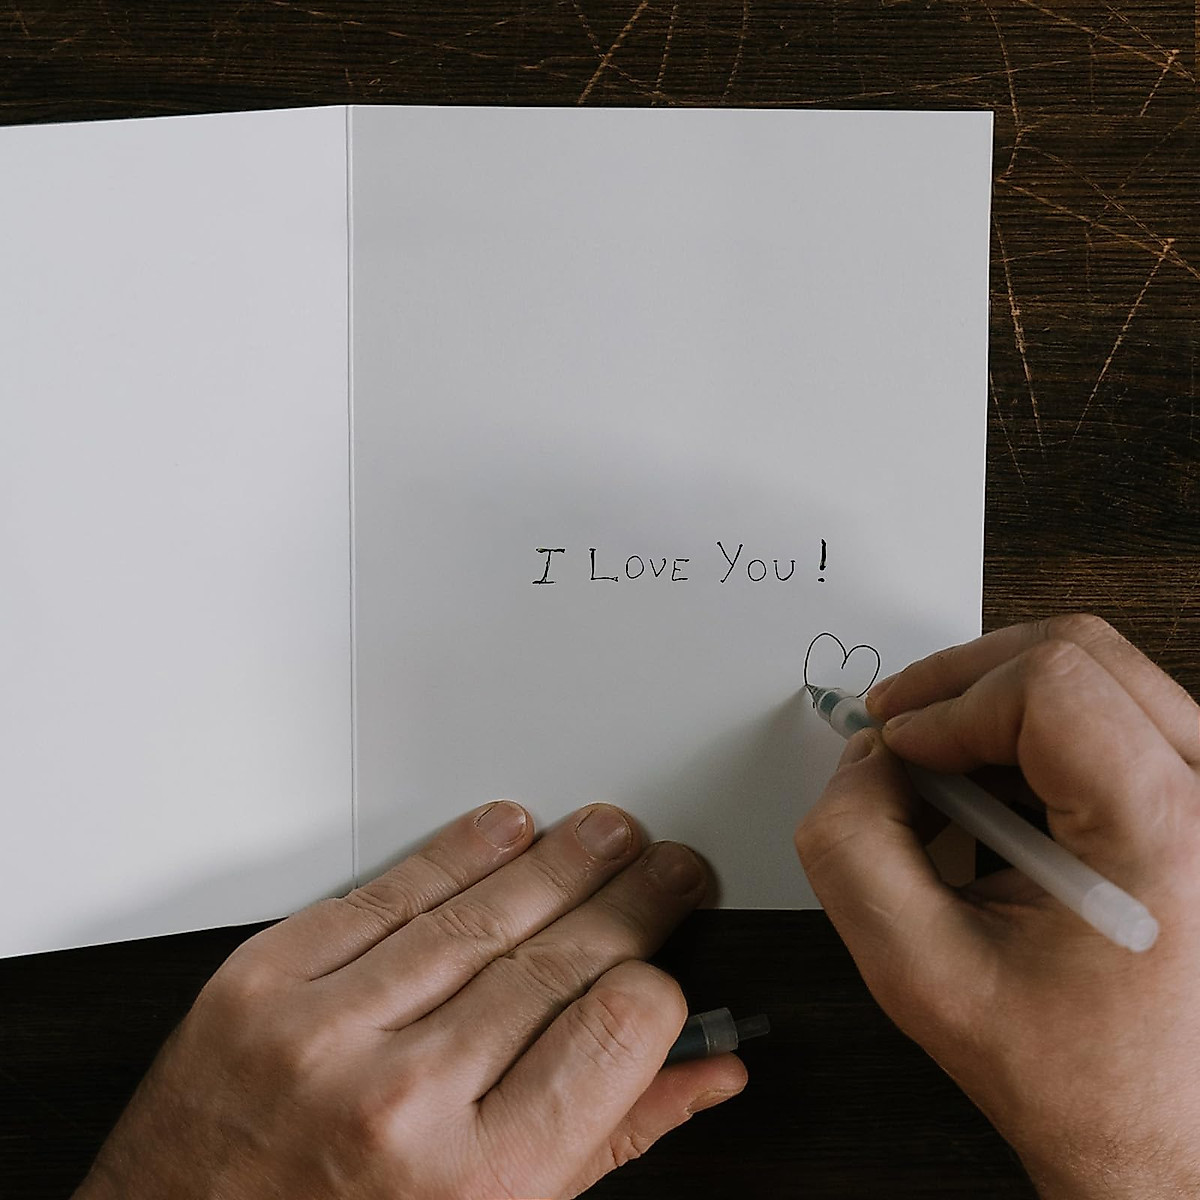 I LOVE YOU !